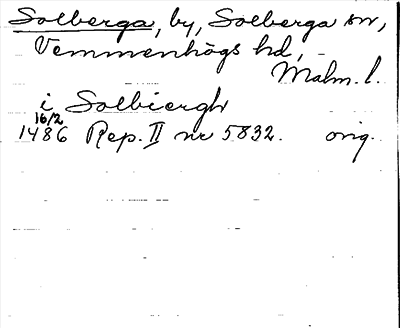 Solberga, by, Solberga sn,
Vemmenhögs hd,
Malm. l.
i Solbiergh
16/2
1486 Rep. II nr 5832. orig.